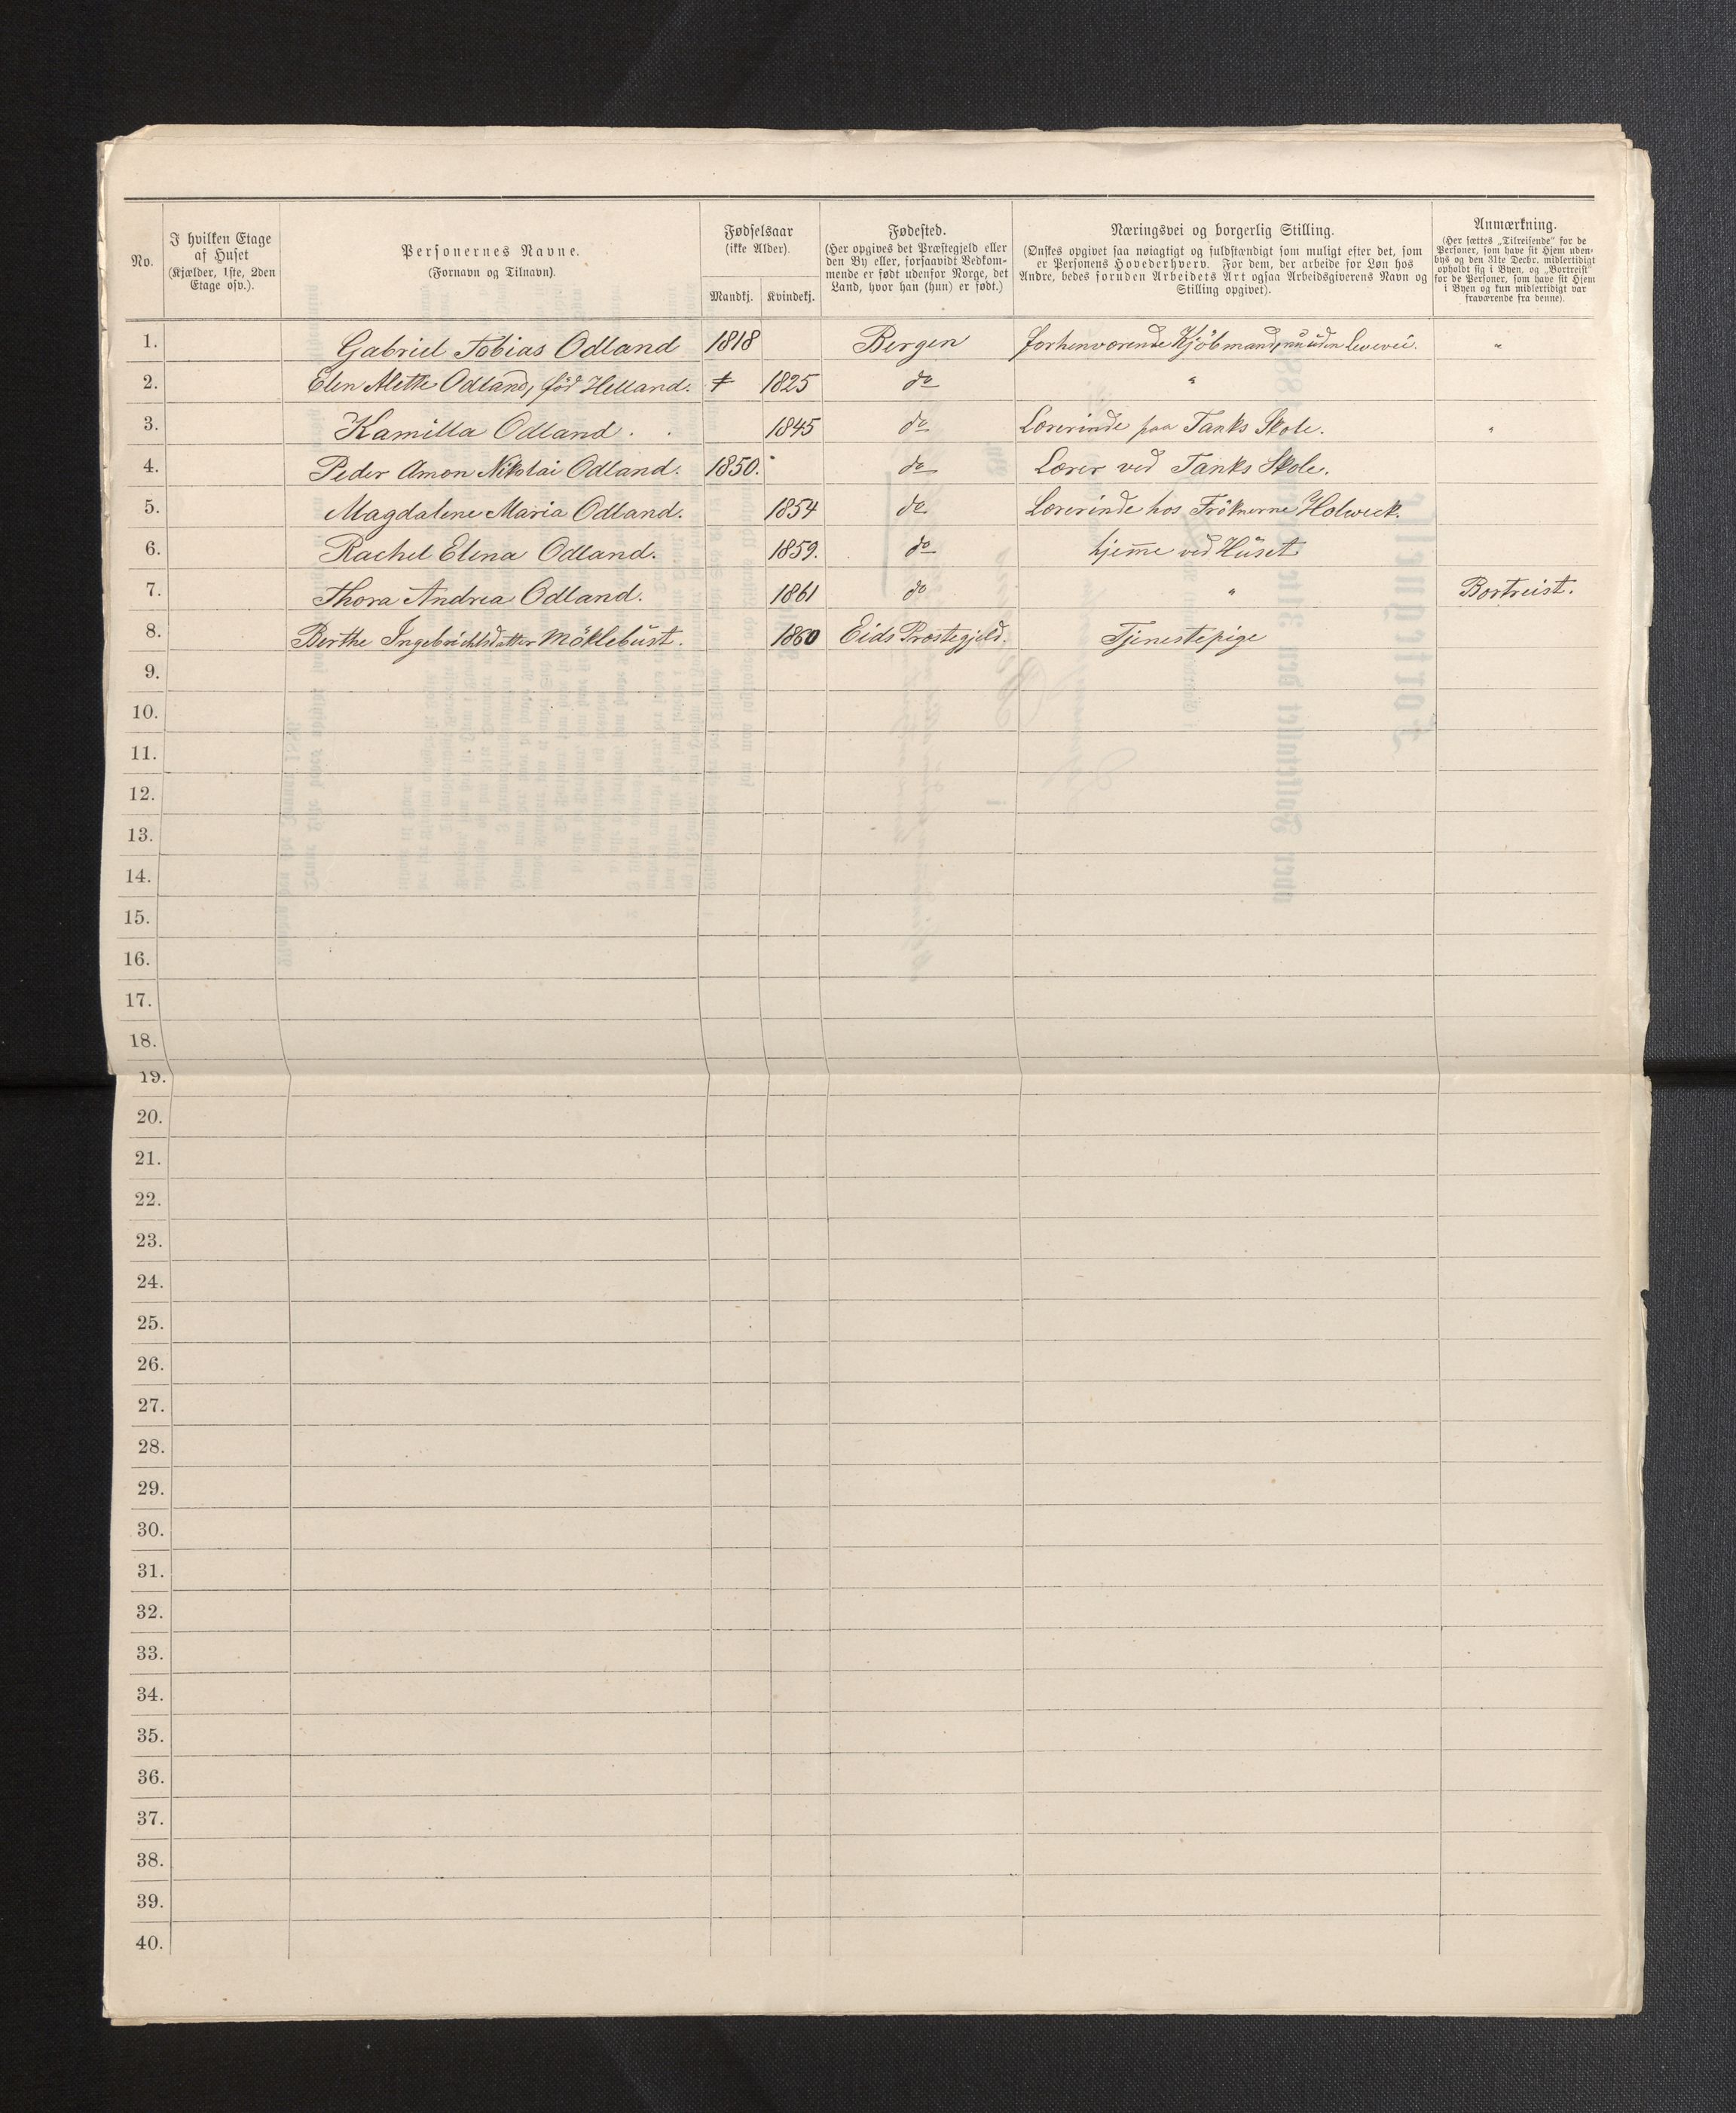 No.
I hvilken Etage
af Huset
(Kjælder, 1ste, 2den
Etage osv.).
Personernes Navne.
(Fornavn og Tilnavn).
Fødselsaar
(ikke Alder).
Mandkj. Kvindekj.
Fødested.
(Her opgives det Præstegjeld eller
den By eller, forsaavidt Vedkom-
mende er født udenfor Norge, det
Land, hvor han (hun) er født.)
Næringsvei og borgerlig Stilling.
(Ønskes opgivet saa nøiagtigt og fuldstændigt som muligt efter det, som
er Personens Hovederhverv. For dem, der arbeide for Løn hos
Andre, bedes foruden Arbeidets Art ogsaa Arbeidsgiverens Navn og
Stilling opgivet).
Anmærkning.
(Her sættes „Tilreisende“ for de
Personer, som have sit Hjem uden-
bys og den 31te Decbr. midlertidigt
opholdt sig i Byen, og „Bortreist“
for de Personer, som have sit Hjem
i Byen og kun midlertidigt var
fraværende fra denne).
1. Gabriel Tobias Odland 1818 Bergen forhenværende Kjöbmand, nu uden Levevei. "
2. Elen Alette Odland, föd Helland. 1825 do "
3. Kamilla Odland . . 1845 do Lærerinde paa Tanks Skole. "
4. Peder Amon Nikolai Odland. 1850. do Lærer ved Tanks Skole.
5. Magdalene Maria Odland. 1854 do Lærerinde hos Fröknerne Holweck.
6. Rachel Elena Odland. 1859. do hjemme ved Huset
7. Thora Andrea Odland. 1861 do " Bortreist.
8. Berthe Ingebrichtsdatter Möklebust. 1860 Eids Præstegjeld. Tjenestepige
9.
10.
11.
12.
13.
14.
15.
16.
17.
18.
19.
20.
21.
22.
23.
24.
25.
26.
27.
28.
29.
30.
31.
32.
33.
34.
35.
36.
37.
38.
39.
40.